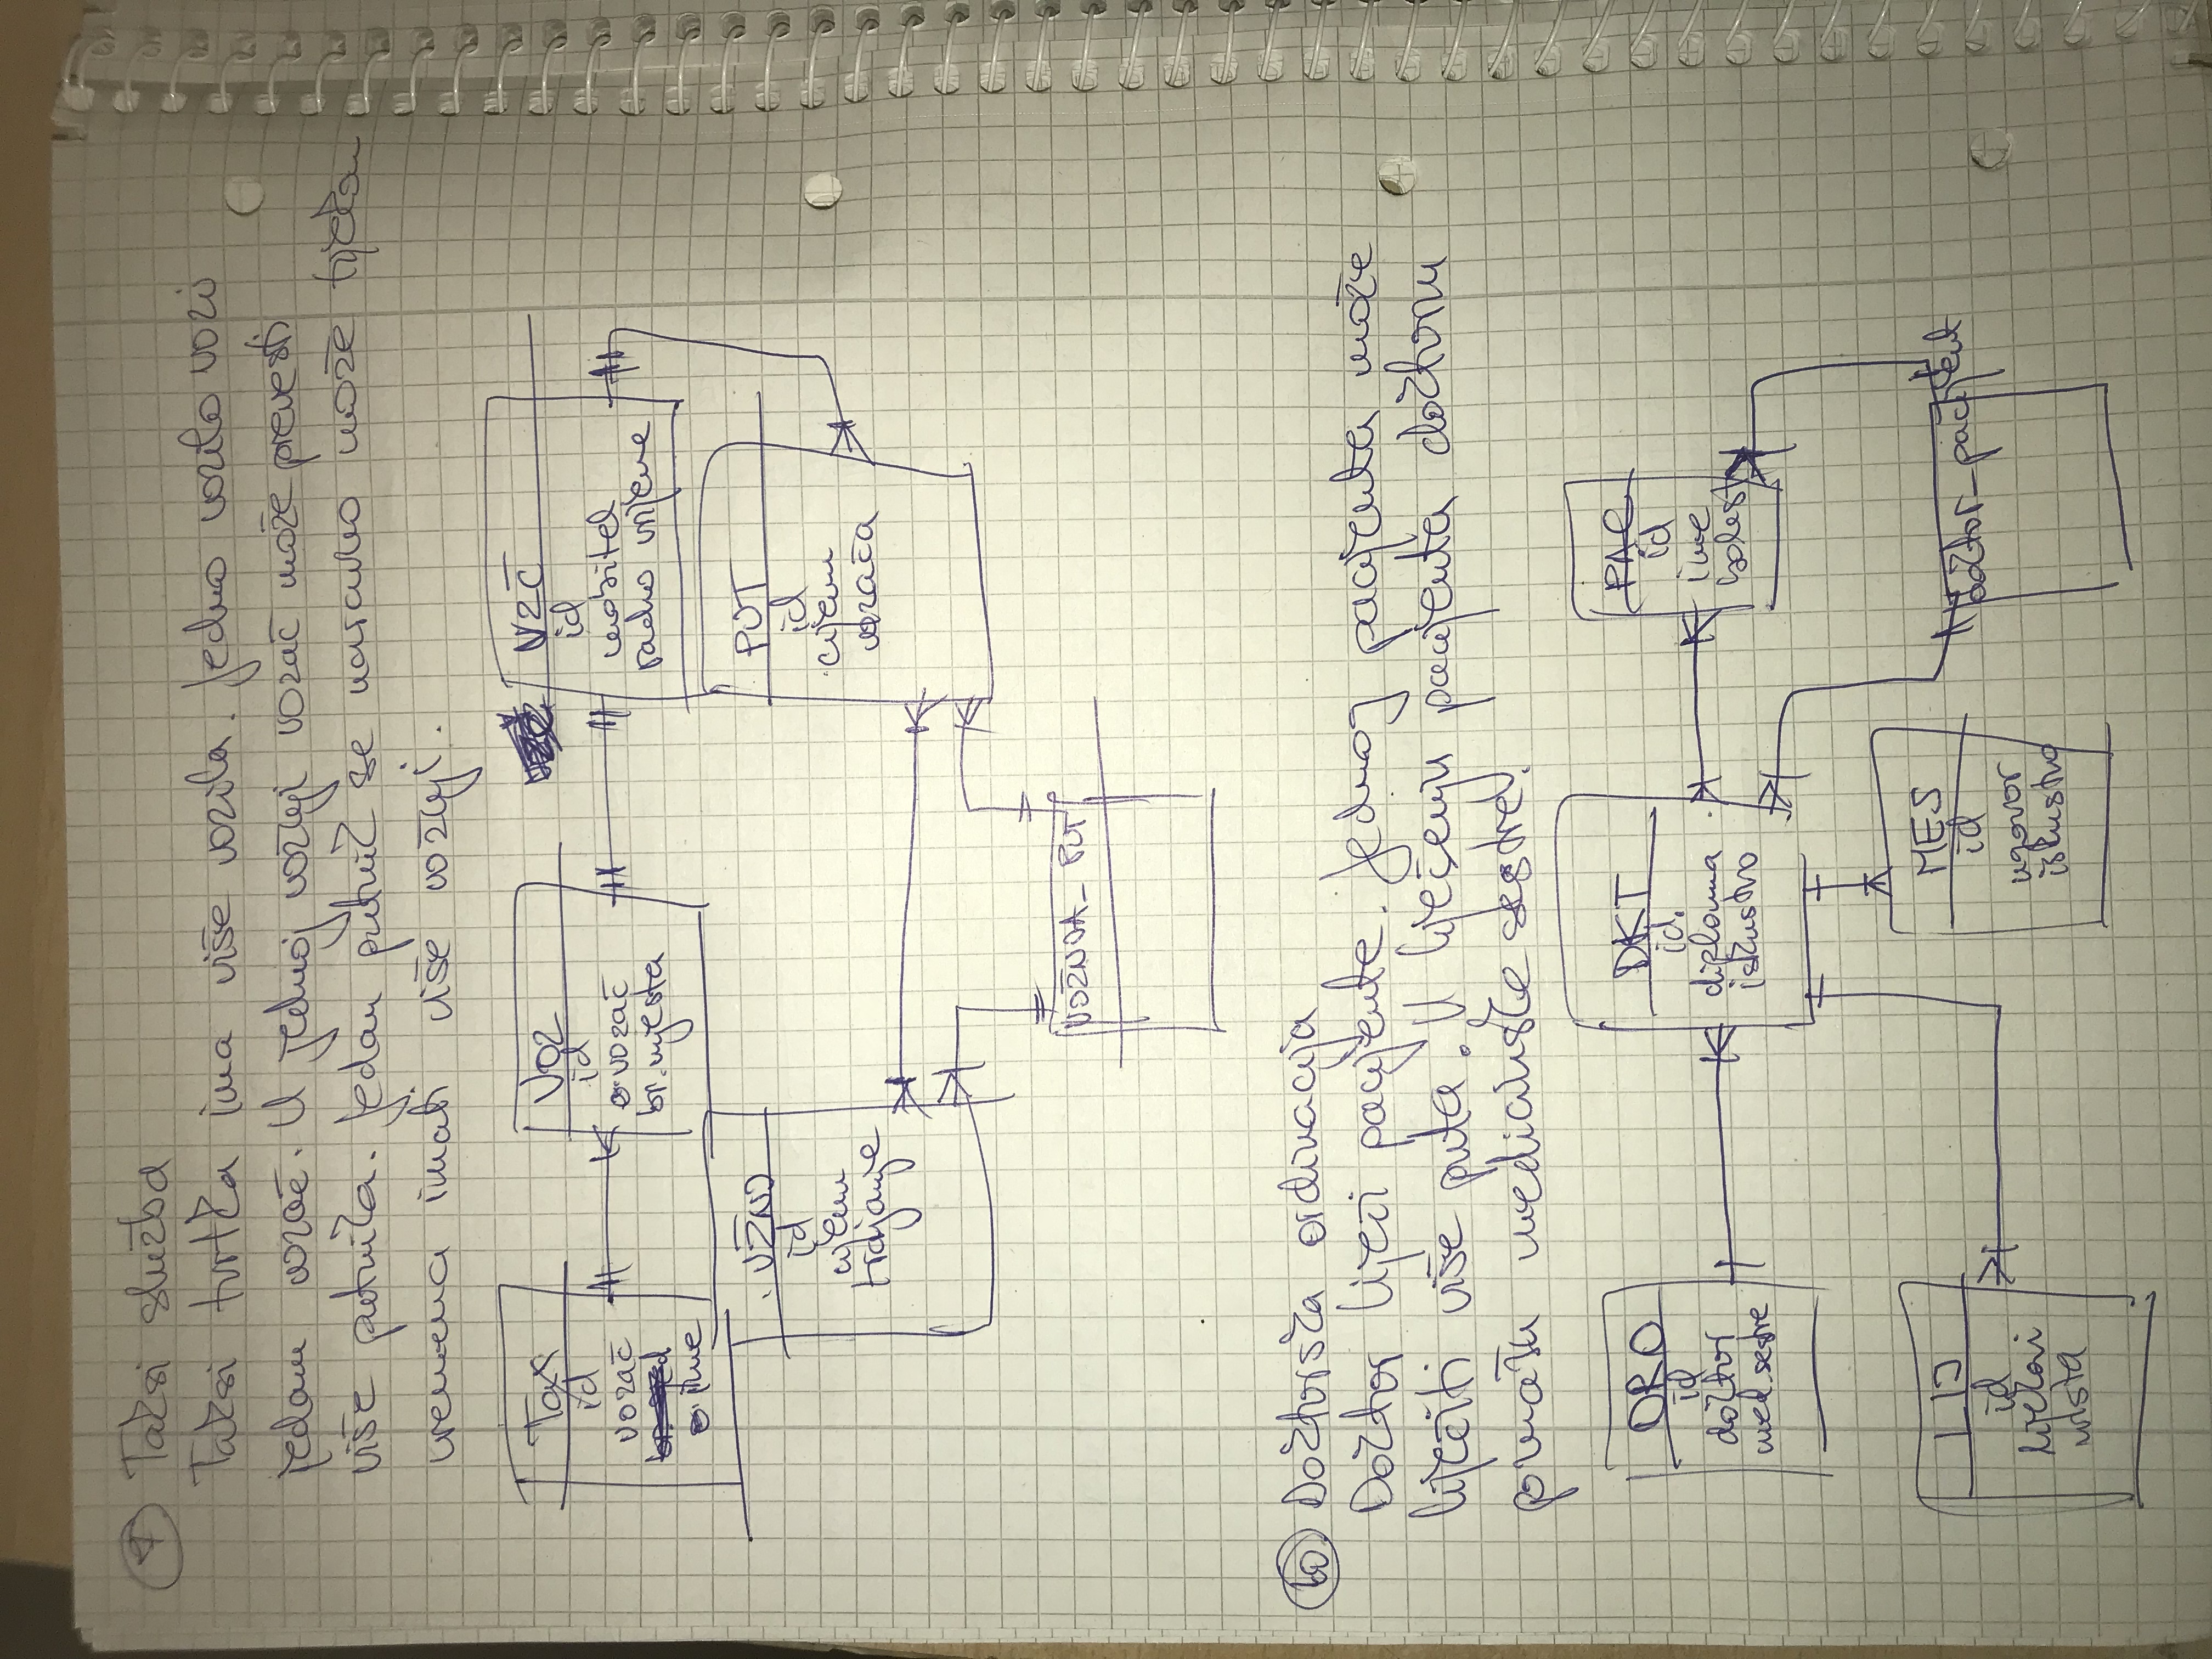 Taksi služba
Taksi tvrtka ima više vozila. Jedno vozilo vozi
jedan vozač. U jednoj vožnji vozač može prevesti
više putnika. Jedan putnik se naravno može tijekom
vremena imati više vožnji.
Tax
id
vozač
ime
VOZ
id
vozač
br. mjesta
VZČ
id
mobitel
radno vrijeme
VŽNJ
id
cijena
trajanje
PUT
id
cijena
vozača
VOŽNJA_PUT
10. Doktorska ordinacija
Doktor liječi pacijente. Jednog pacijenta može
liječiti više puta. U liječenju pacijenta doktoru
pomažu medicinske sestre.
ORD
id
doktor
med. sestre
DKT
id
diploma
iskustvo
PAC
id
ime
bolest
LIJ
id
lijekovi
vrsta
MES
id
ugovor
iskustvo
doktor_pacijent